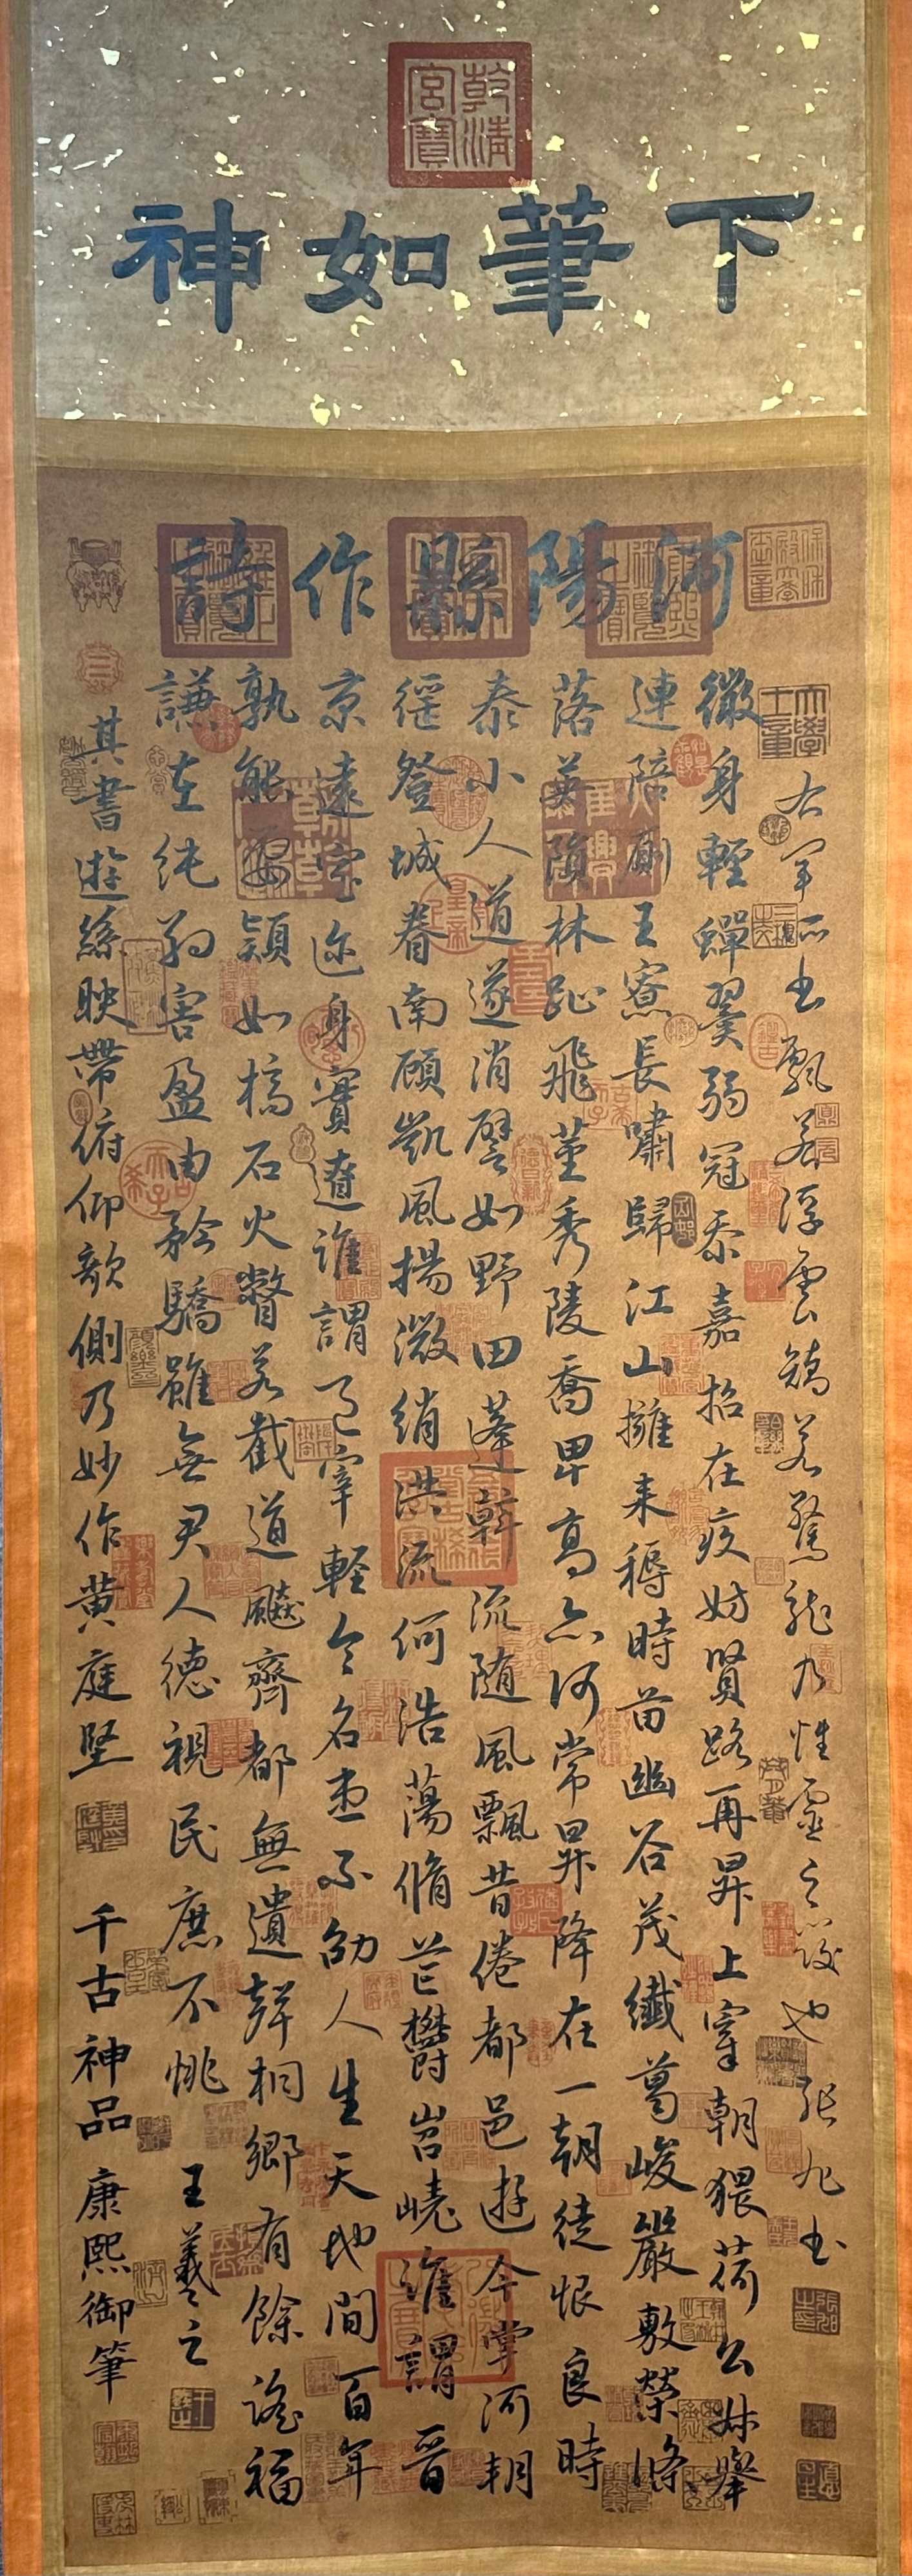 乾清宮寶
下筆如神
河陽縣作詩
右軍所书飄若浮雲矯若驚龍乃性靈之跋也張旭书
微身輕蟬翼弱冠忝嘉招在疚妨賢路再昇上宰朝猥荷公叔舉
連陪厠王寮長嘯歸江山擁耒耨時苗幽谷茂纖葛峻巖敷榮條
落英隕林趾飛莖秀陵喬卑高亦何常昇降在一朝徒恨良時
泰小人道遂消譬如野田蓬斡流随風飄昔倦都邑遊今掌河朔
徭登城眷南顧凱風揚微綃洪流何浩蕩脩芒鬱岧嶢誰謂晉
京遠室迩身實遼誰謂邑宰輕令名患不劭人生天地間百年
孰能要頴如槁石火瞥若截道飇齊都無遺聲桐鄉有餘謠福
謙在純約害盈由矜驕雖無君人德視民庶不恌 王羲之
其書遊絲映帶俯仰欹側乃妙作黄庭坚 千古神品 康熙御筆